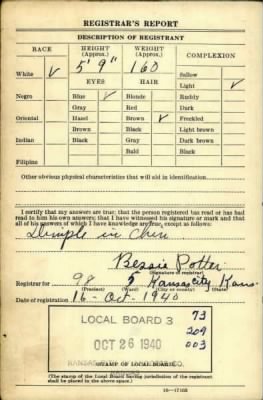 REGISTRAR'S REPORT
DESCRIPTION OF REGISTRANT
RACE HEIGHT (Approx.) WEIGHT (Approx.) COMPLEXION
5' 9" 160
White ✓ Sallow
EYES HAIR Light ✓
Negro Blue ✓ Blonde Ruddy
Gray Red Dark
Oriental Hazel Brown ✓ Freckled
Brown Black Light brown
Indian Black Gray Dark brown
Bald Black
Filipino
Other obvious physical characteristics that will aid in identification
I certify that my answers are true; that the person registered has read or has had
read to him his own answers; that I have witnessed his signature or mark and that
all of his answers of which I have knowledge are true, except as follows:
Dimple in Chin
Bessie Potter
(Signature of registrar)
Registrar for 98 5 Kansas City Kans
(Precinct) (Ward) (City or county) (State)
Date of registration 16-Oct-1940
LOCAL BOARD 3 73
209
OCT 26 1940 003
KANSAS
STAMP OF LOCAL BOARD
(The stamp of the Local Board having jurisdiction of the registrant
shall be placed in the above space.)
16—17105